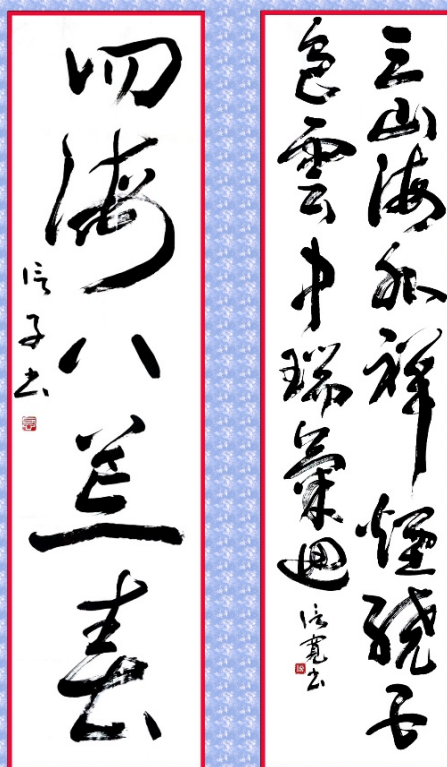 三山海外祥煙繞五
色雲中瑞氣迴
信寛書
四海八春
信子書